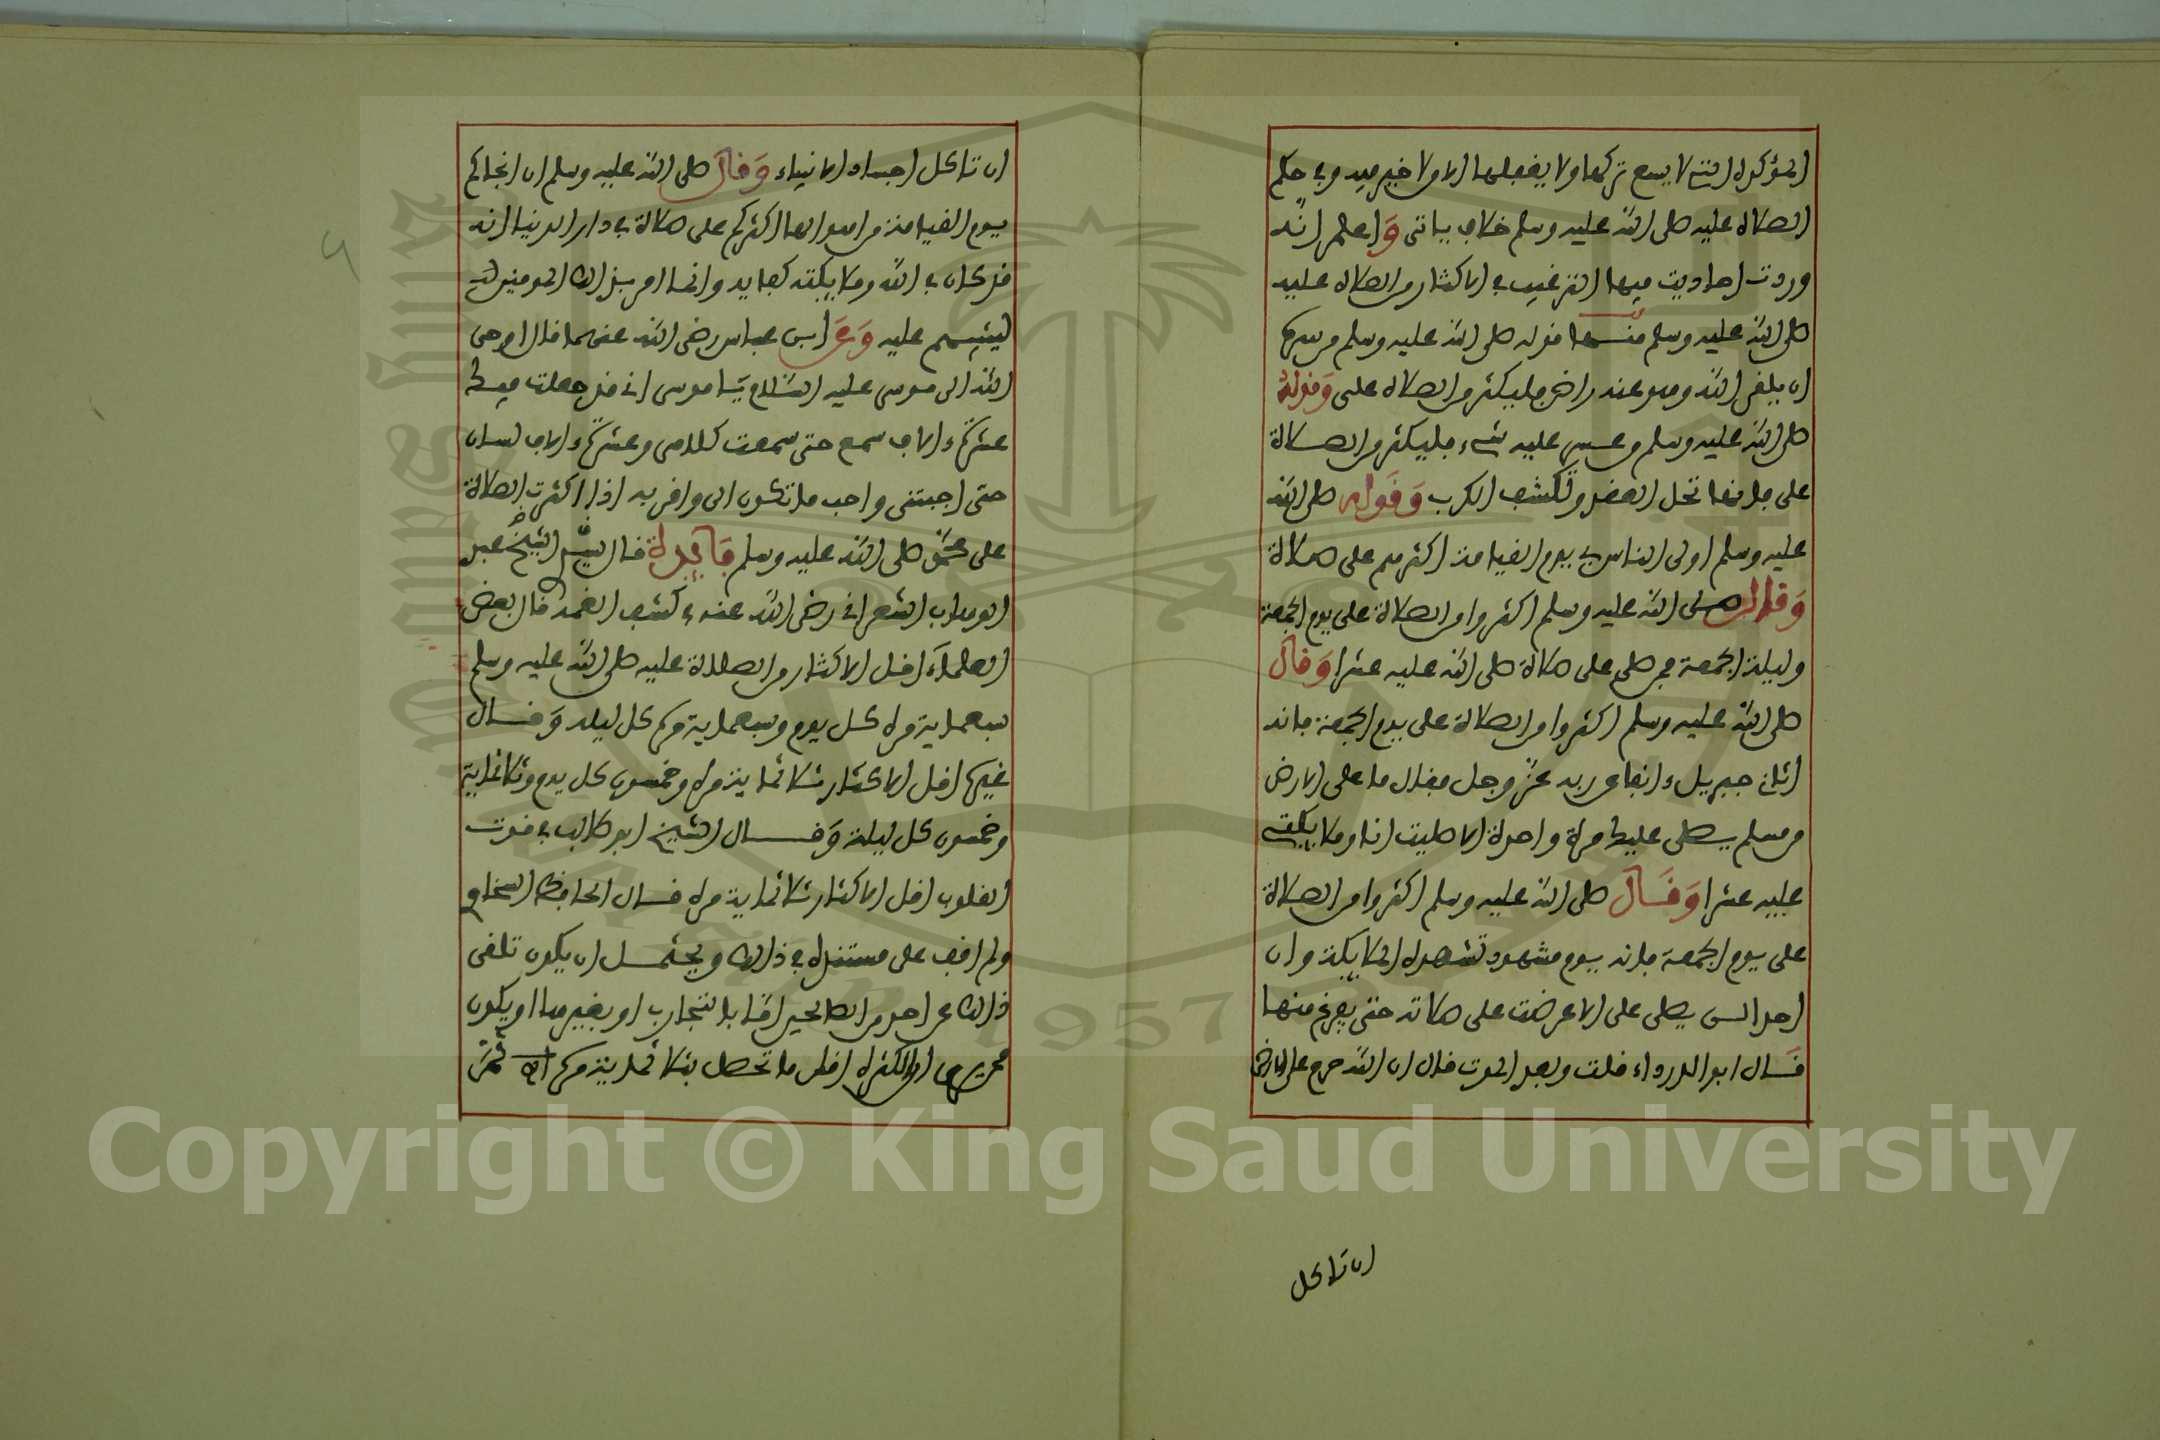 المؤكدة التي لا يسع تركها ولا يغفلها الا من لا خير فيه وفي حكم
الصلاة عليه صلى الله عليه وسلم خلاف ياتي واعلم انه
وردت احاديث فيها الترغيب في الاكثار من الصلاة عليه
صلى الله عليه وسلم منها قوله صلى الله عليه وسلم من سره
ان يلقى الله وهو عنه راض فليكثر من الصلاة على وقوله
صلى الله عليه وسلم من عسر عليه شيء فليكثر من الصلاة
على فانها تحل العقد وتكشف الكرب وقوله صلى الله
عليه وسلم اولى الناس بي يوم القيامة اكثرهم على صلاة
وقال صلى الله عليه وسلم اكثروا من الصلاة على يوم الجمعة
وليلة الجمعة فمن صلى على صلاة صلى الله عليه عشرا وقال
صلى الله عليه وسلم اكثروا من الصلاة على يوم الجمعة فانه
اتاني جبريل ءانفا عن ربه عز وجل فقال ما على الارض
من مسلم يصلى عليك مرة واحدة الا صليت انا وملائكتى
عليه عشرا وقال صلى الله عليه وسلم اكثروا من الصلاة
على يوم الجمعة فانه يوم مشهود تشهده الملائكة وان
احدا لن يصلى على الا عرضت على صلاته حتى يفرغ منها
قال ابو الدرداء قلت وبعد الموت قال ان الله حرم على الارض
ان تاكل
ان تاكل اجساد الانبياء وقال صلى الله عليه وسلم ان انجاكم
يوم القيامة من اهوالها اكثركم على صلاة في دار الدنيا انه
قد كان في الله وملائكته كفاية وانما امر بذلك المومنين
ليثيبهم عليه وعن ابن عباس رضى الله عنهما قال اوحى
الله الى موسى عليه السلام يا موسى انى قد جعلت فيك
عشرة ءالاف سمع حتى سمعت كلامى وعشرة ءالاف لسان
حتى اجبتنى واحب ما تكون الى واقربه اذا اكثرت الصلاة
على محمد صلى الله عليه وسلم فايدة قال الشيخ عبد
الوهاب الشعرانى رضى الله عنه في كشف الغمة قال بعض
العلماء اقل الاكثار من الصلاة عليه صلى الله عليه وسلم
سبعماية مرة كل يوم وسبعماية مرة كل ليلة وقال
غيره اقل الاكثار ثلاثماية مرة وخمسون كل يوم وثلاثماية
وخمسون كل ليلة وقال الشيخ ابو طالب في قوت
القلوب اقل الاكثار ثلاثماية مرة قال الحافظ السخاوي
ولم اقف على مستنده في ذلك ويحتمل ان يكون تلقى
ذلك عن احد من الصالحين اما بالتجارب او بغيرها او يكون
ممن يرى ان الكثرة اقل ما تحصل بثلاثماية مرة اه
Copyright © King Saud University
1957